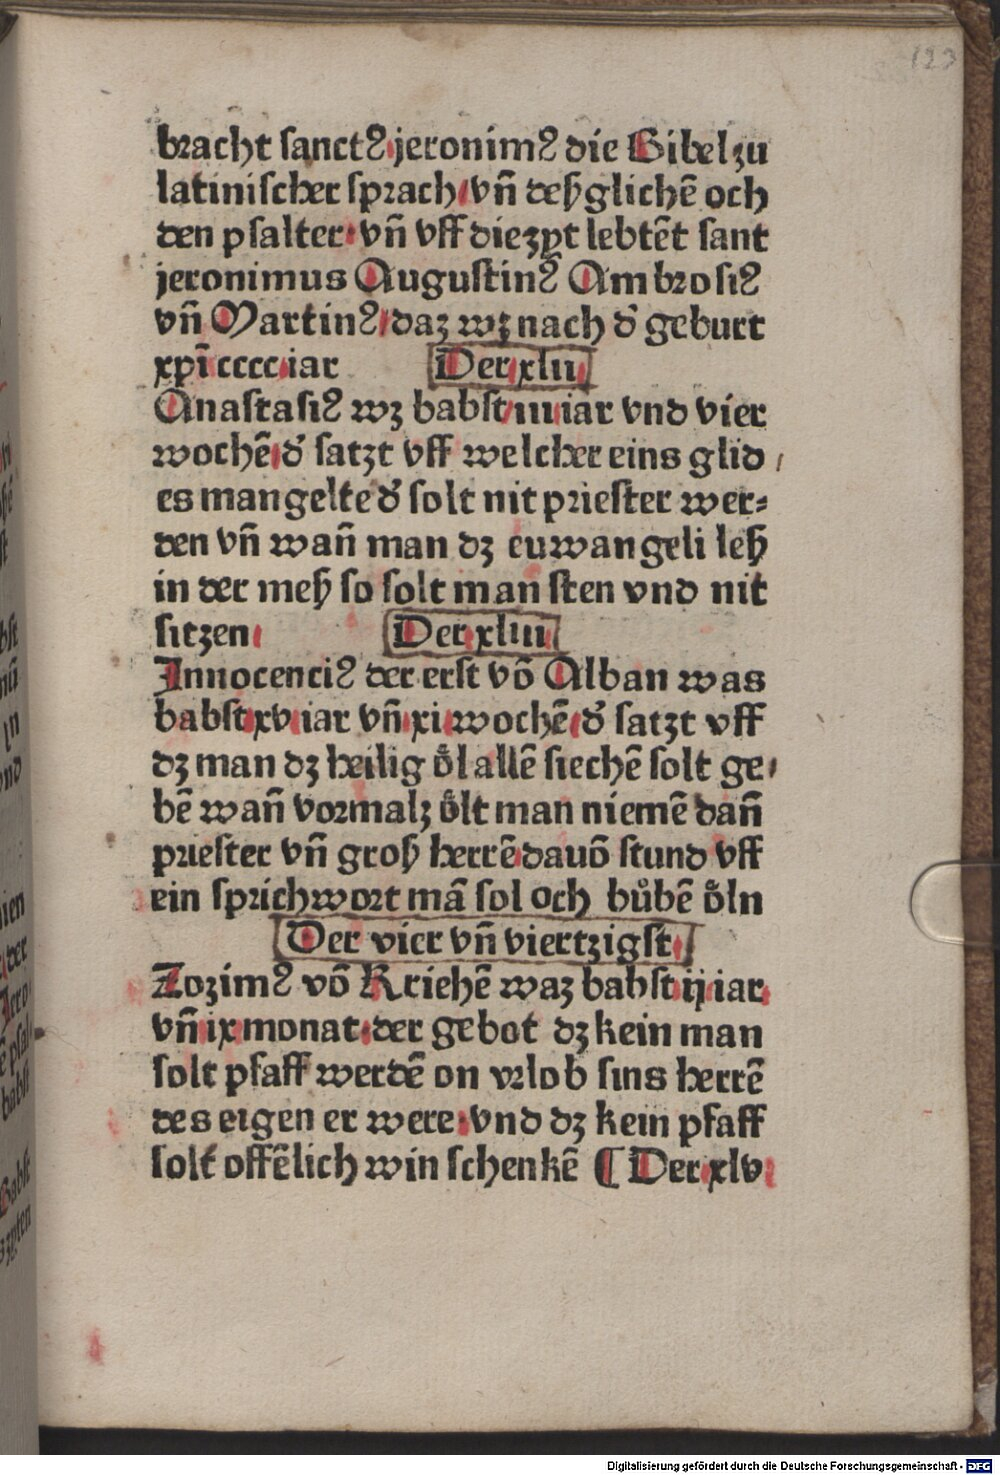 123
bracht sanctꝰ jeronimꝰ die Bibel zu
latinischer sprach / vn̄ deßglichē och
den psalter · vn̄ vff die zyt lebtēt sant
jeronimus Augustinꝰ Ambrosiꝰ
vn̄ Martinꝰ / daz wz nach d̕ geburt
xp̄i cccc iar Der xlii
Anastasiꝰ wz babst iii iar vnd vier
wochē d̕ satzt vff welcher eins glid
es mangelte d̕ solt nit priester wer⸗
den vn̄ wan̄ man dz euwangeli leß
in der meß so solt man sten vnd nit
sitzen Der xliii
Innocenciꝰ der erst vō Alban was
babst xv iar vn̄ xi wochē d̕ satzt vff
dz man dz heilig oͤl allē siechē solt ge
bē wan̄ vormalz oͤlt man niemē dan̄
priester vn̄ groß herrē dauō stund vff
ein sprichwort mā sol och buͦbē oͤln
Der vier vn̄ viertzigst
Zozimꝰ vō Kriehē waz babst ij iar
vn̄ ix monat · der gebot dz kein man
solt pfaff werdē on vrlob sins herrē
des eigen er were · vnd dz kein pfaff
solt offēlich win schenkē ¶ Der xlv
Digitalisierung gefördert durch die Deutsche Forschungsgemeinschaft - DFG